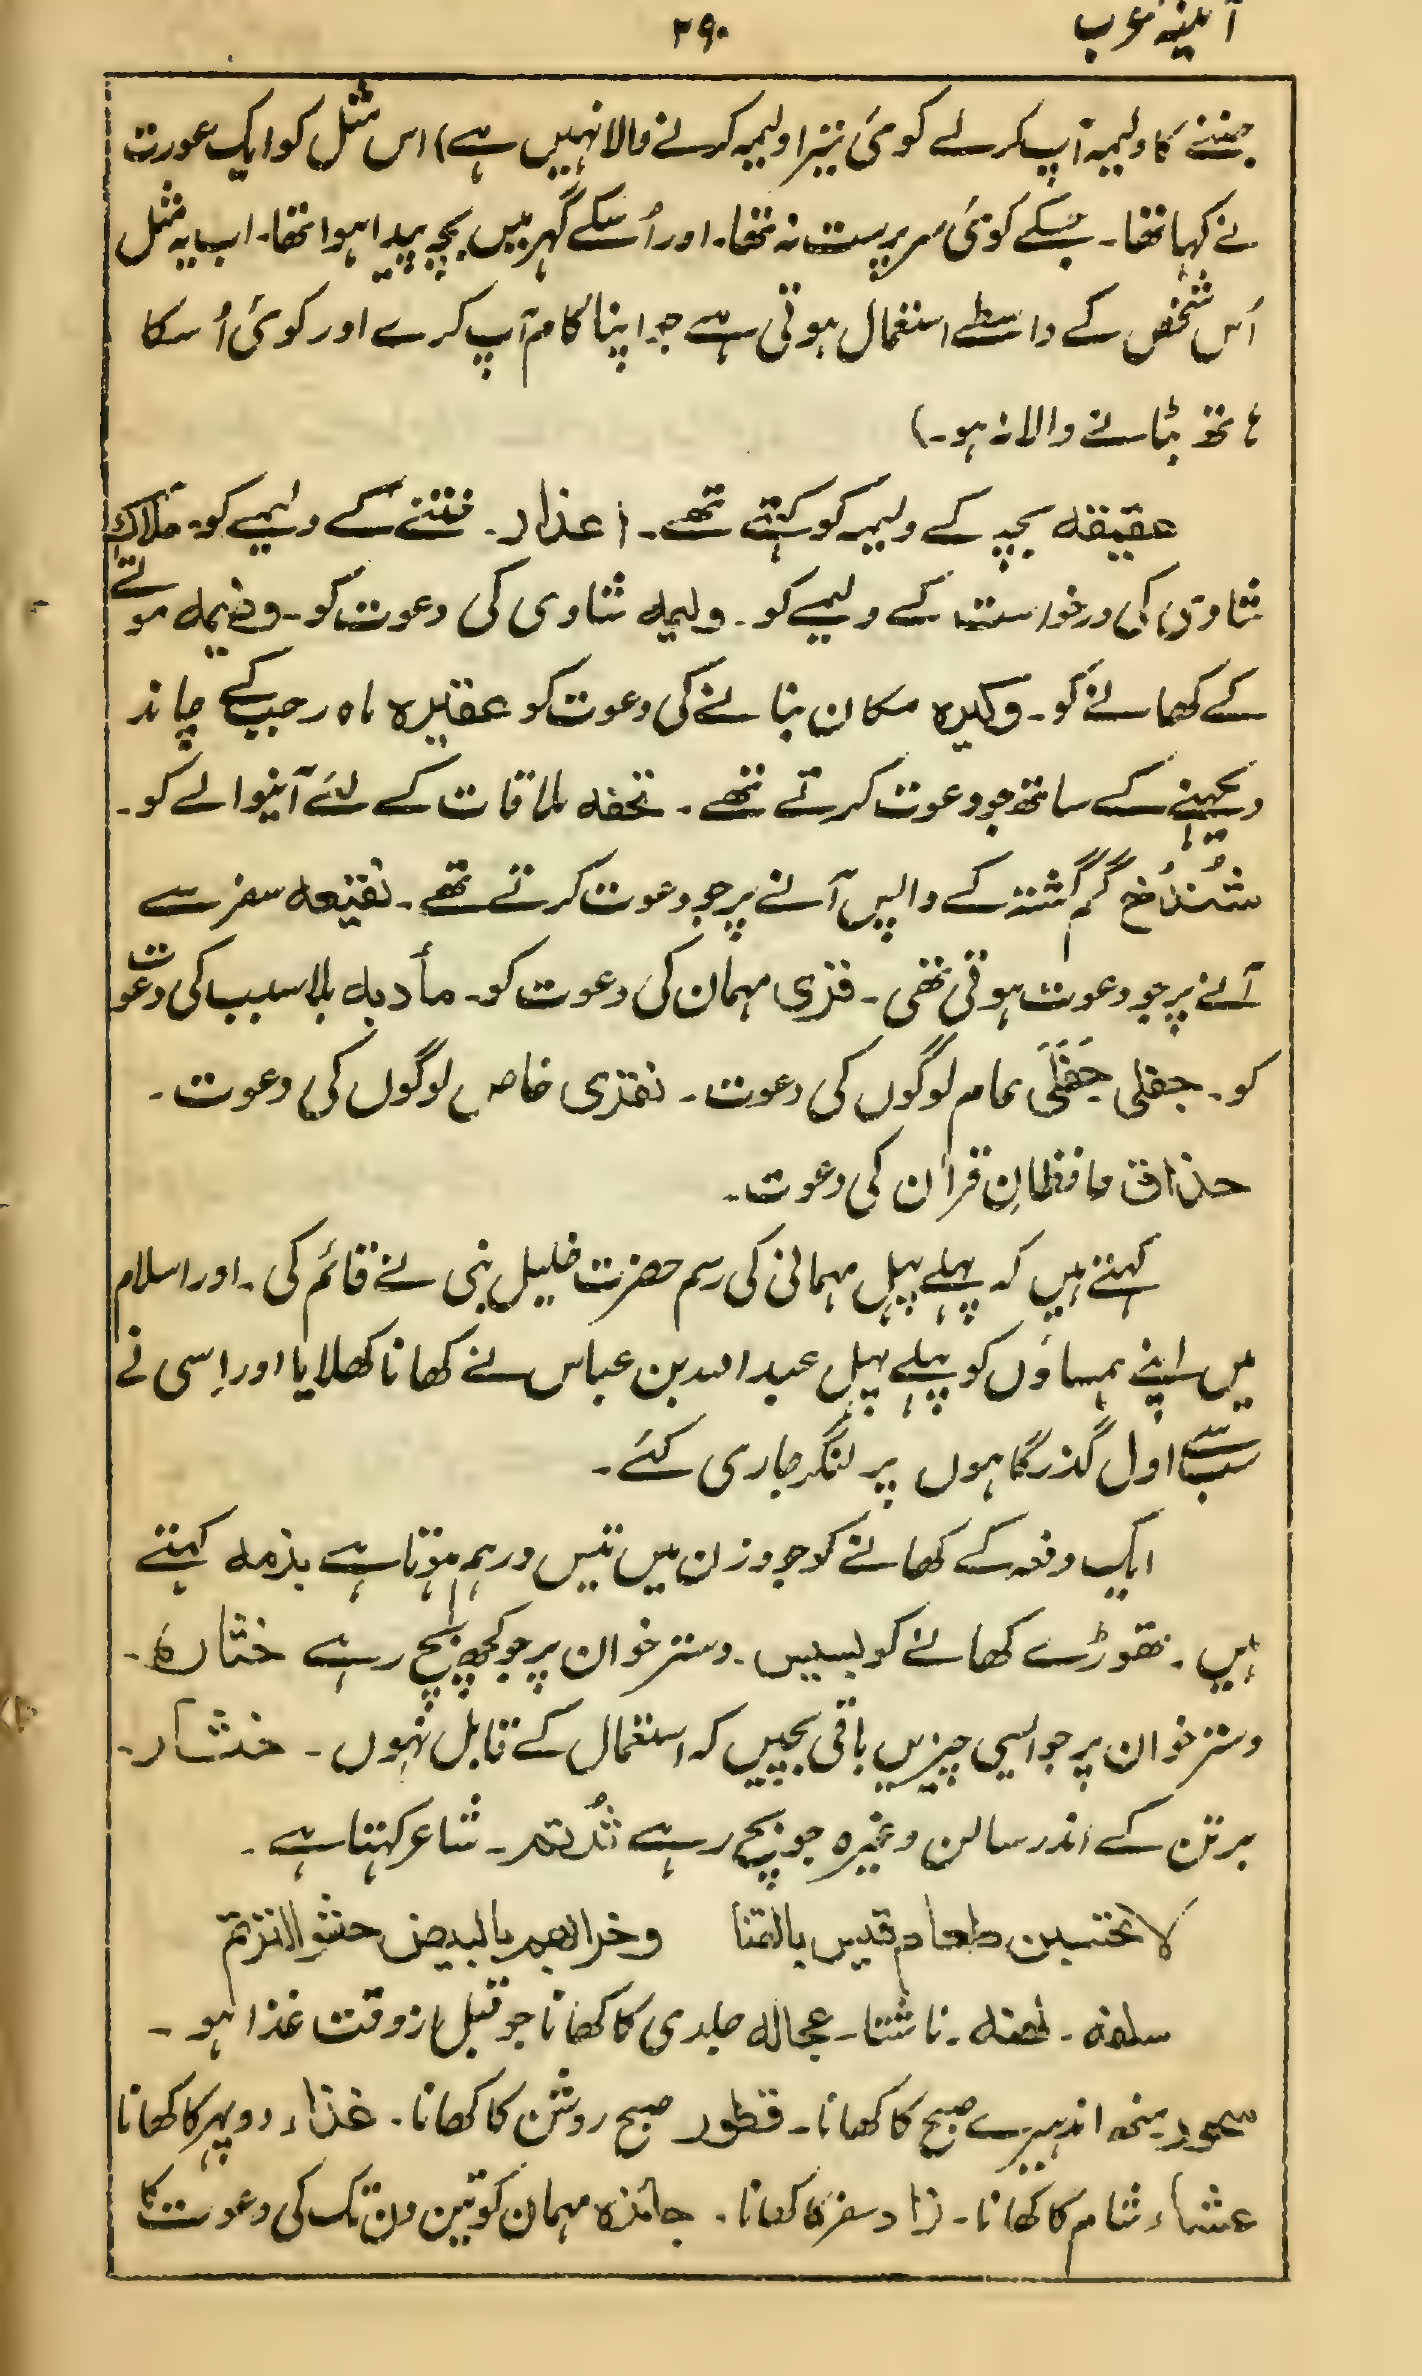 آئینہ عرب ۲۹۰
جننے کا ولیمہ آپ کرلے کوئی تیرا ولیمہ کرنے والا نہیں ہے) اس مثل کو ایک عورت
نے کہا تھا۔ جسکے کوئی سرپرست نہ تھا۔ اور اُسکے گہر میں بچہ پیدا ہوا تھا۔ اب یہ مثل
اُس شخص کے واسطے استعمال ہوتی ہے جو اپنا کام آپ کرے اور کوئی اُسکا
ہاتھ بٹانے والا نہ ہو۔)
عقیقہ بچہ کے ولیمہ کو کہتے تھے۔ اعذار۔ ختنے کے ولیمے کو۔ ملاک
شادی کی درخواست کے ولیمے کو۔ ولیمہ شادی کی دعوت کو۔ وضیمہ موتے
کے کھانے کو۔ وکیرہ مکان بنانے کی دعوت کو عقیرہ ماہ رجب کے چاند
دیکہنے کے ساتھ جو دعوت کرتے تھے۔ تحفہ ملاقات کے لئے آنیوالے کو۔
شُندُخ گم گشتہ کے واپس آنے پر جو دعوت کرتے تھے۔ نقیعہ سفر سے
آنے پر جو دعوت ہوتی تھی۔ قری مہمان کی دعوت کو۔ مأدبہ بلا سبب کی دعوت
کو۔ جفلی جَفَلَی عام لوگوں کی دعوت۔ نقری خاص لوگوں کی دعوت۔
حذاق حافظانِ قرآن کی دعوت۔
کہتے ہیں کہ پہلے پہل مہمانی کی رسم حضرت خلیل نبی نے قائم کی۔ اور اسلام
میں اپنے ہمساؤں کو پہلے پہل عبد اللہ بن عباس نے کھانا کھلایا اور اِسی نے
سب سے اول گذرگاہوں پر لنگر جاری کئے۔
ایک دفعہ کے کھانے کو جو وزن میں تیس درہم ہوتا ہے بذمہ کہتے
ہیں۔ تھوڑے کھانے کو لسیس۔ دسترخوان پر جو کچھ بچ رہے ختارہ۔
دسترخوان پر جو ایسی چیزیں باقی بچیں کہ استعمال کے قابل نہوں۔ خشار۔
برتن کے اندر سالن وغیرہ جو بچ رہے ثُرتم۔ شاعر کہتا ہے۔
لا تحسبن طعام قیس بالقنا وضرابهم بالبیض حسو الثرتم
سلفہ۔ لھنہ۔ ناشتا۔ عجالہ جلدی کا کھانا جو قبل از وقت غذا ہو۔
سحور منھ اندہیرے صبح کا کھانا۔ فطور صبح روشن کا کھانا۔ غذاء دوپہر کا کھانا
عشاء شام کا کھانا۔ زاد سفر کا کھانا۔ جائزہ مہمان کو تین دن تک کی دعوت کا